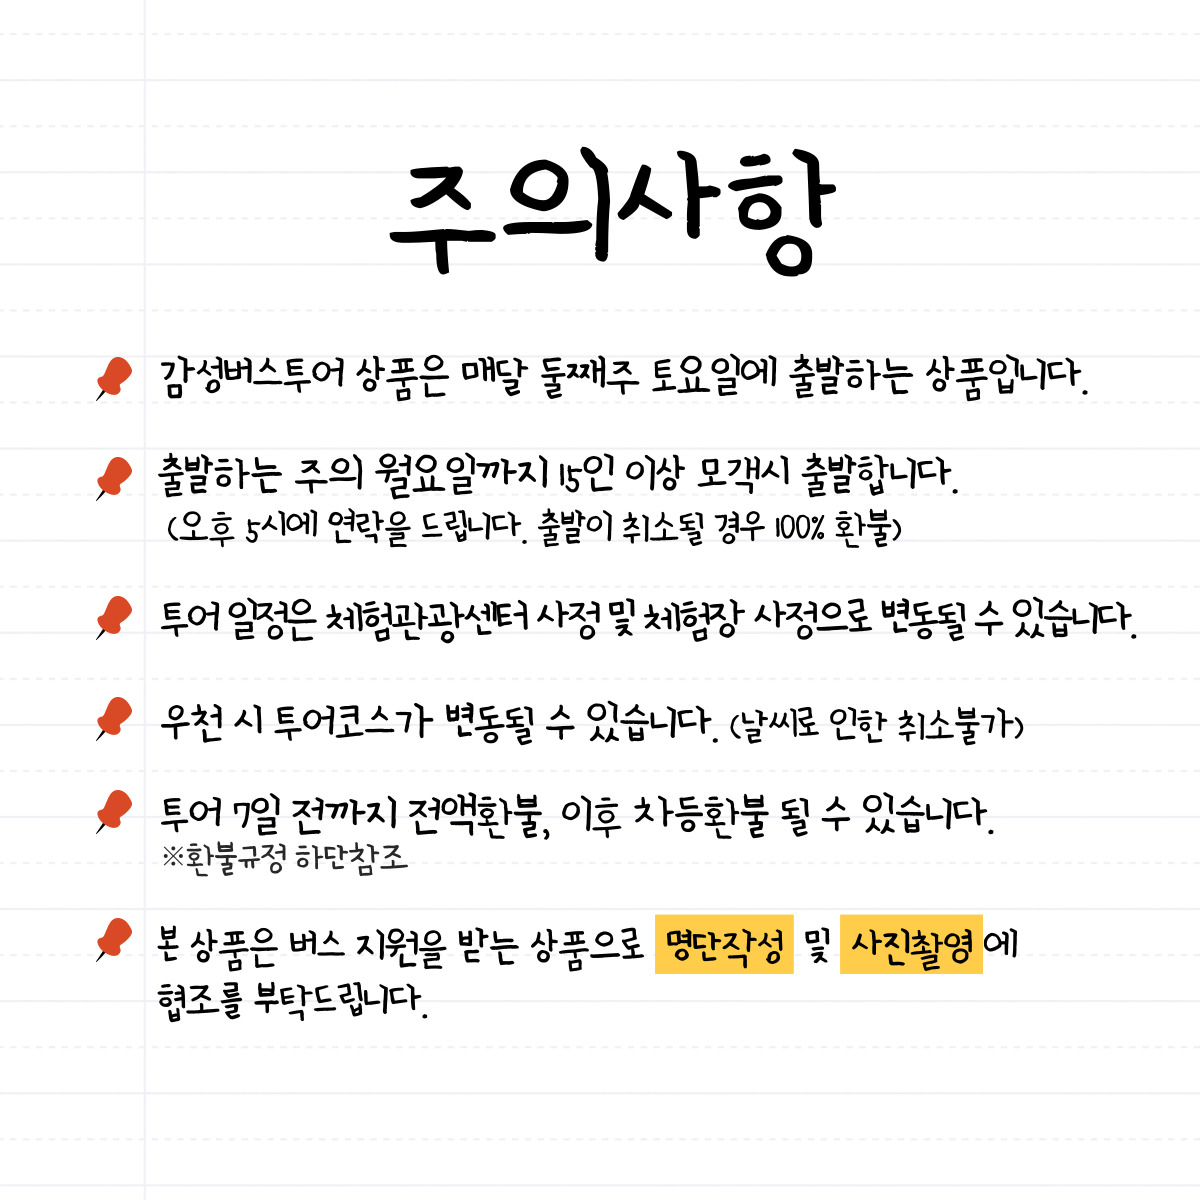 주의사항
감성버스투어 상품은 매달 둘째주 토요일에 출발하는 상품입니다.
출발하는 주의 월요일까지 15인 이상 모객시 출발합니다.
(오후 5시에 연락을 드립니다. 출발이 취소될 경우 100% 환불)
투어 일정은 체험관광센터 사정 및 체험장 사정으로 변동될 수 있습니다.
우천 시 투어코스가 변동될 수 있습니다. (날씨로 인한 취소불가)
투어 7일 전까지 전액환불, 이후 차등환불 될 수 있습니다.
※환불규정 하단참조
본 상품은 버스 지원을 받는 상품으로 명단작성 및 사진촬영에
협조를 부탁드립니다.